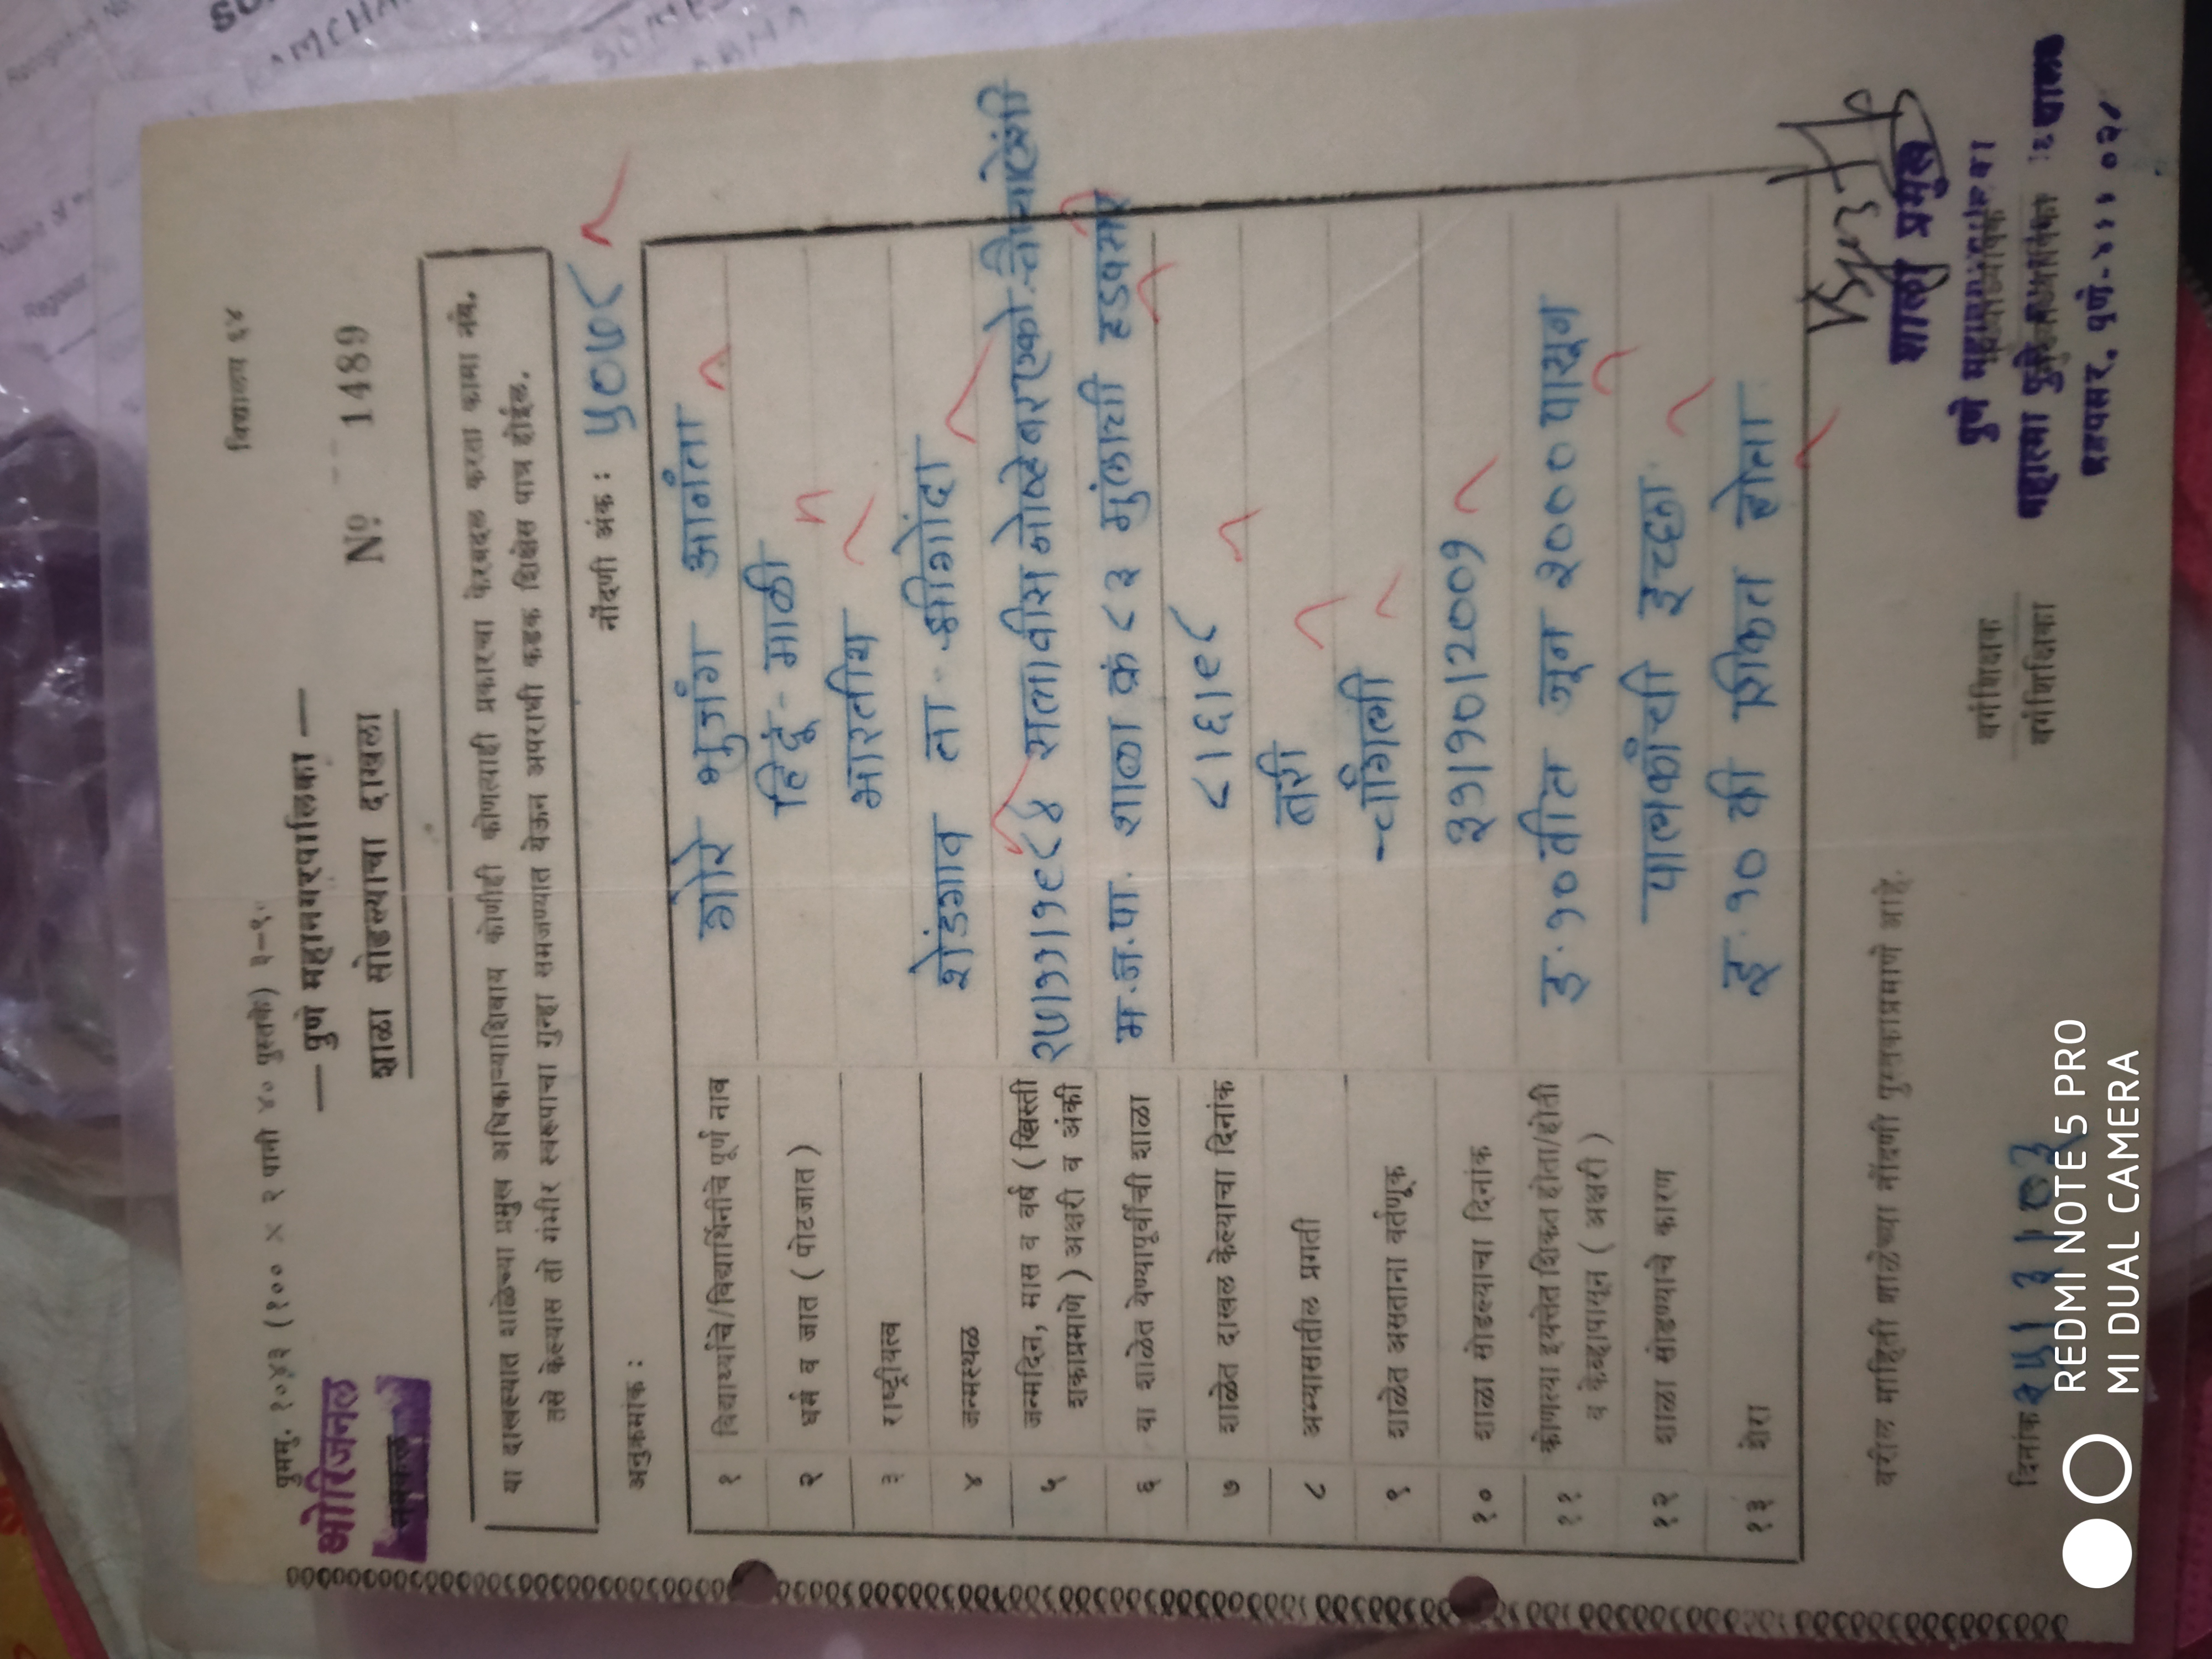 पुममु. १०४३ (१०० × २ पानी ५० पुस्तके) ३-९.
विद्यालय ६५
ओरिजनल
— पुणे महानगरपालिका —
शाळा सोडल्याचा दाखला
Nº 1489
या दाखल्यात शाळेच्या प्रमुख अधिकाऱ्याशिवाय कोणीही कोणत्याही प्रकारचा फेरबदल करता कामा नये.
तसे केल्यास तो गंभीर स्वरूपाचा गुन्हा समजण्यात येऊन अपराधी कडक शिक्षेस पात्र होईल.
अनुक्रमांक :
नोंदणी अंक : ५०७८
१ विद्यार्थ्याचे/विद्यार्थिनीचे पूर्ण नाव गोरे भुजंग आनंता
२ धर्म व जात ( पोटजात ) हिंदू - माळी
३ राष्ट्रीयत्व भारतीय
४ जन्मस्थळ शेडगाव ता - श्रीगोंदा
५ जन्मदिन, मास व वर्ष (ख्रिस्ती
शकाप्रमाणे ) अक्षरी व अंकी
६ या शाळेत येण्यापूर्वीची शाळा म.न.पा. शाळा क्रं ८२ मुंलाची हडपसर
७ शाळेत दाखल केल्याचा दिनांक ८।६।९८
८ अभ्यासातील प्रगती बरी
९ शाळेत असताना वर्तणूक चांगली
१० शाळा सोडल्याचा दिनांक ३१।१०।2००१
११ कोणत्या इयत्तेत शिकत होता/होती
व केव्हापासून ( अक्षरी ) इ. १० वीत जून २००० पासून
१२ शाळा सोडण्याचे कारण पालकांची इच्छा
१३ शेरा इ. १० वी शिकत होता
वरील माहिती शाळेच्या नोंदणी पुस्तकाप्रमाणे आहे.
दिनांक
वर्गशिक्षक
वर्गशिक्षिका
शाला प्रमुख
पुणे महानगरपालिका
हडपसर, पुणे-
REDMI NOTE 5 PRO
MI DUAL CAMERA